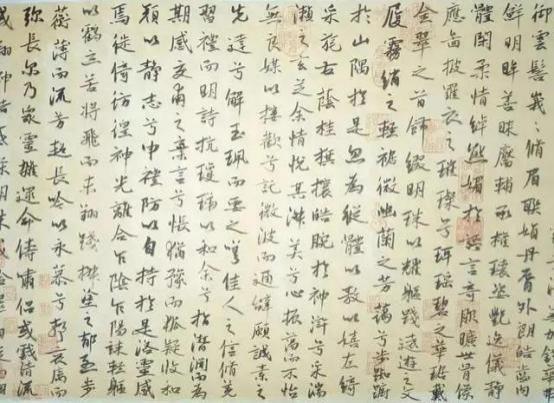 御雲髻峩〻脩眉聯娟丹脣外朗皓齒内
鮮明眸善睞靨輔承權瓌姿艷逸儀靜
體閑柔情綽態媚於語言奇服曠世骨像
應圖披羅衣之璀璨兮珥瑤碧之華琚戴
金翠之首飾綴明珠以耀軀踐遠遊之文
履霧綃之輕裾微幽蘭之芳藹兮步踟躕
於山隅於是忽焉縱體以敖以嬉左綺
采旄右蔭桂旗攘皓腕於神滸兮采湍
瀨之玄芝余情悦其淑美兮心振蕩而不怡
無良媒以接歡兮託微波而通辭願誠素之
先達兮解玉珮而要之嗟佳人之信脩羌
習禮而明詩抗瓊珶以和余兮指潛淵而為
期感交甫之棄言兮悵猶豫而狐疑收和
顏以静志兮申禮防以自持於是洛靈感
焉徙倚彷徨神光離合乍陰乍陽竦輕軀
以鶴立若將飛而未翔踐椒塗之郁烈步
蘅薄而流芳超長吟以永慕兮聲哀厲而
弥長尔乃衆靈雜遝命儔嘯侣或戲清流